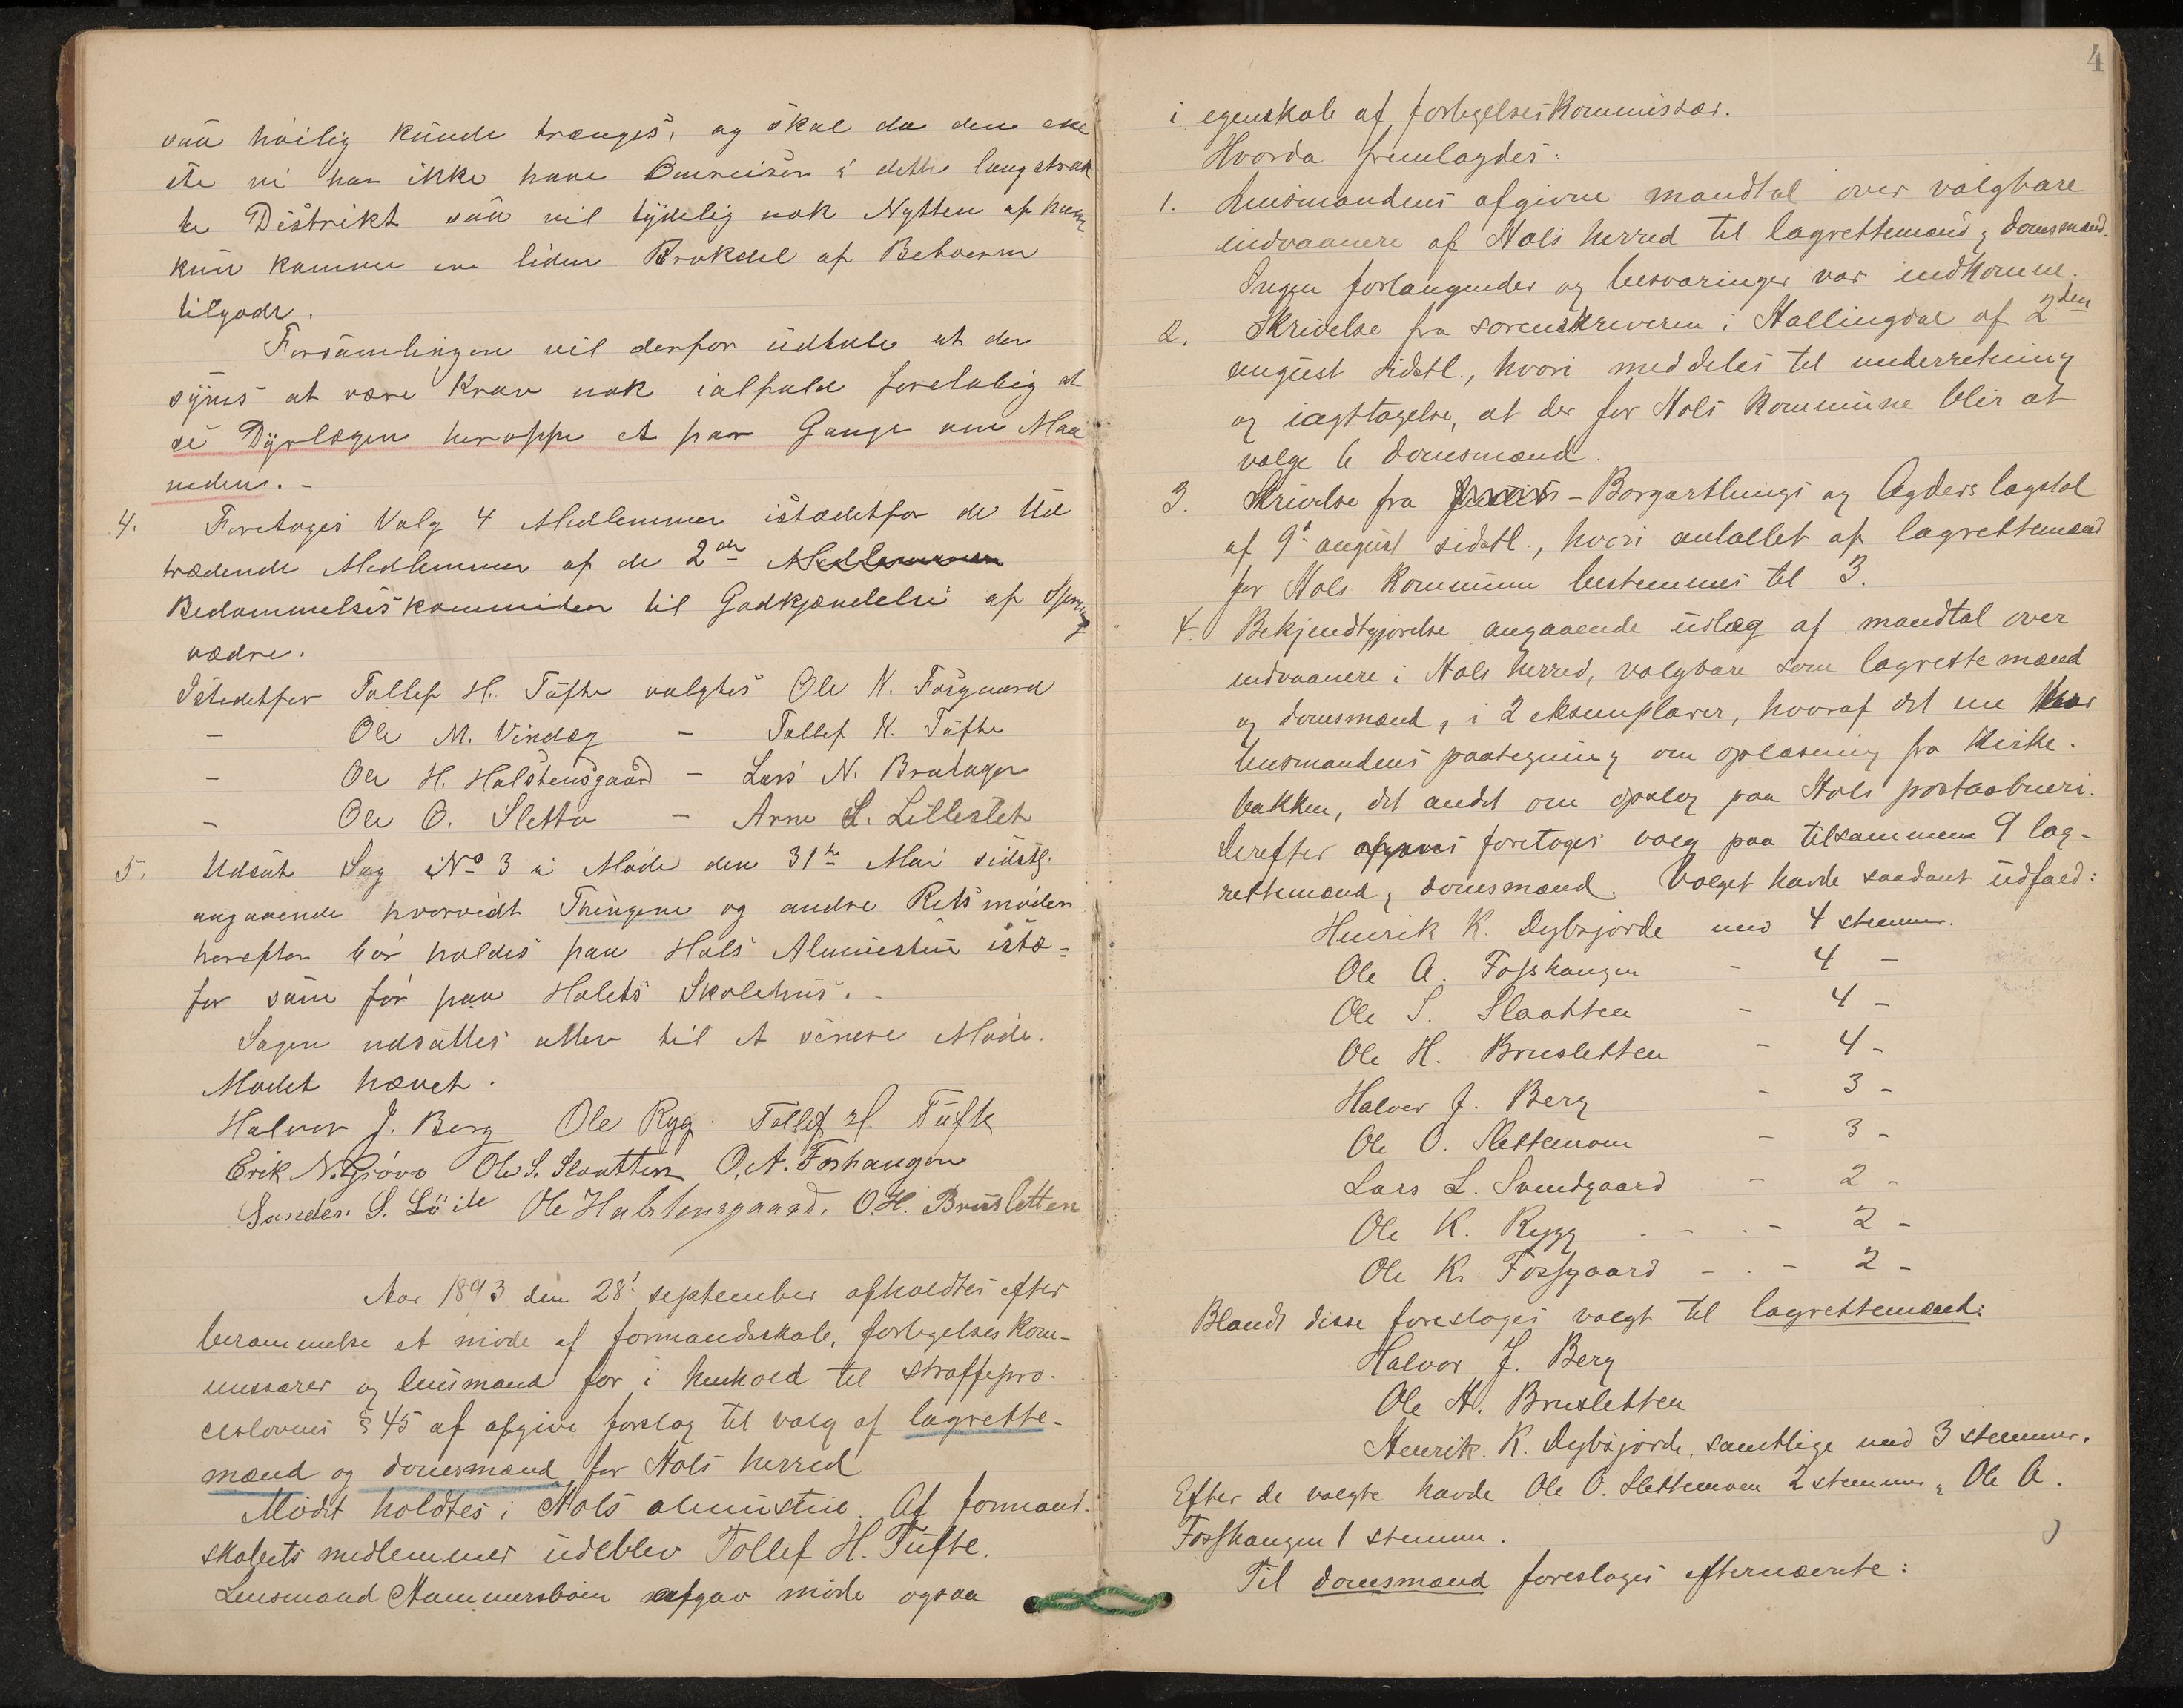 saa høilig kunde trænges, og skal da den ene
ste vi har ikke have Omreisen i dette langstrak
te Distrikt saa vil tydelig nok Nytten af ham
kun komme en liden Brøkdel af Behovene
tilgode.
Forsamlingen vil derfor udtale at der
synes at være Krav nok ialfald foreløbig at
se Dyrlægen heroppe et par Gange om Maa
neden. -
4. Foretoges Valg 4 Medlemmer istædetfor de Ud
trædende Medlemmer af de 2de Medlemmer
Bedømmelseskommiteer til Godkjendelse af
vædre.
Istedetfor Tollef H. Tufte valgtes Ole K. Fosgaard
- Ole M. Vindeg - Tollef K. Tufte
- Ole H. Halstensgaard - Lars N. Bratager
- Ole O. Sletto - Arne L. Lilleslet
5. Udsat Sag No 3 i Møde den 31te Mai sidstl.
angaaende hvorvidt Thingene og andre Retsmøder
herefter bør holdes paa Hols Almuestue istæ-
for som før paa Holets Skolehus.
Sagen udsættes atter til et senere Møde.
Mødet hævet.
Halvor J. Berg Ole Ryg. Tollef H. Tufte
Erik N. Grøvo Ole S. Slaatten O. A. Foshaugen
Sander S. Løite Ole Halstensgaard. O. H. Brusletten
Aar 1893 den 28' september afholdtes efter
berammelse et møde af formandskab, forligelseskom-
missærer og lensmand for i henhold til straffepro-
ceslovens § 45 af afgive forslag til valg af lagrette-
mænd og domsmænd for Hols herred
Mødet holdtes i Hols almustue. Af formand-
skabets medlemmer udeblev Tollef H. Tufte.
Lensmand Hammersbøen afgav møde ogsaa
4
i egenskab af forligelseskommissær.
Hvorda fremlagdes:
1. Lensmandens afgivne mandtal over valgbare
indvaanere af Hols herred til lagrettemænd & domsmænd.
Ingen forlangender og besværinger var indkomne.
2. Skrivelse fra sorenskriveren i Hallingdal af 2den
august sidstl., hvori meddeles til underretning
og iagttagelse, at der for Hols kommune blir at
vælge 6 domsmænd.
3. Skrivelse fra - Borgarthings og Agders lagstol
af 9' august sidstl., hvori antallet af lagrettemænd
for Hols kommune bestemmes til 3.
4. Bekjendtgjørelse angaaende udlæg af mandtal over
indvaanere i Hols herred, valgbare som lagrettemænd
og domsmænd, i 2 eksemplarer, hvoraf det ene har
lensmandens paategning om oplæsning fra kirke-
bakken, det andet om opslag paa Hols postaabneri.
Derefter foretoges valg paa tilsammen 9 lag-
rettemænd & domsmænd. Valget havde saadant udfald:
Henrik K. Dybsjorde med 4 stemmer.
Ole A. Fosshaugen - 4 -
Ole S. Slaatten - 4 -
Ole H. Brusletten - 4 -
Halvor J. Berg - 3 -
Ole O. Slettemoen - 3 -
Lars L. Svendgaard - 2 -
Ole K. Rygg - - 2 -
Ole K. Fossgaard - - 2 -
Blandt disse foresloges valgt til lagrettemænd:
Halvor J. Berg
Ole H. Brusletten
Henrik K. Dybsjorde, samtlige med 3 stemmer.
Efter de valgte havde Ole O. Slettemoen 2 stemmer, Ole A.
Fosshaugen 1 stemme.
Til domsmænd foresloges efternævnte: